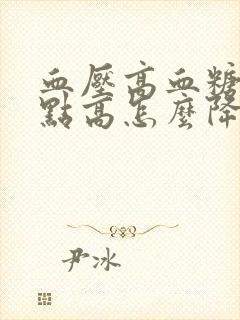 血壓高血糖
點高怎麼降
尹冰